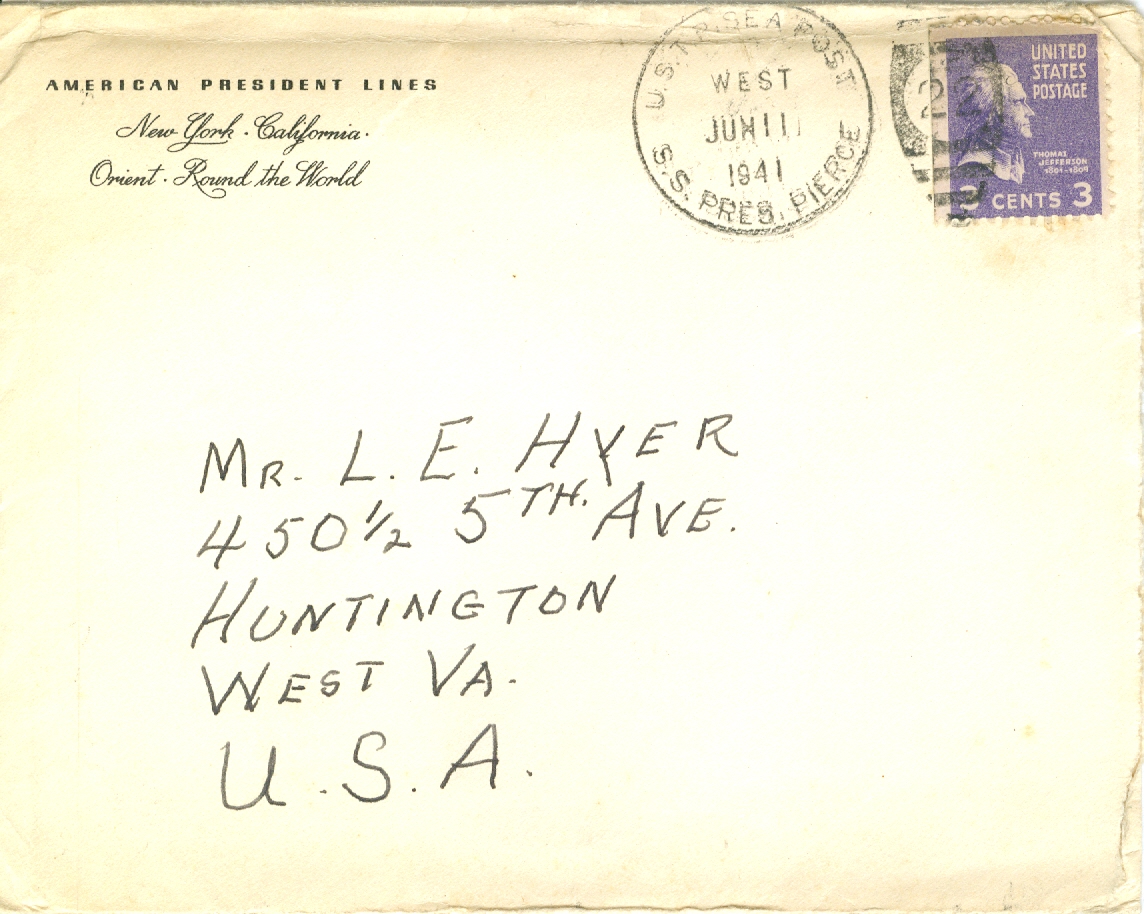 AMERICAN PRESIDENT LINES
New York · California ·
Orient · Round the World
U.S.T.P. SEA POST
WEST
JUN 11
1941
S.S. PRES. PIERCE
UNITED
STATES
POSTAGE
THOMAS
JEFFERSON
1801-1809
3 CENTS 3
MR. L. E. HYER
450½ 5TH. AVE.
HUNTINGTON
WEST VA.
U.S.A.